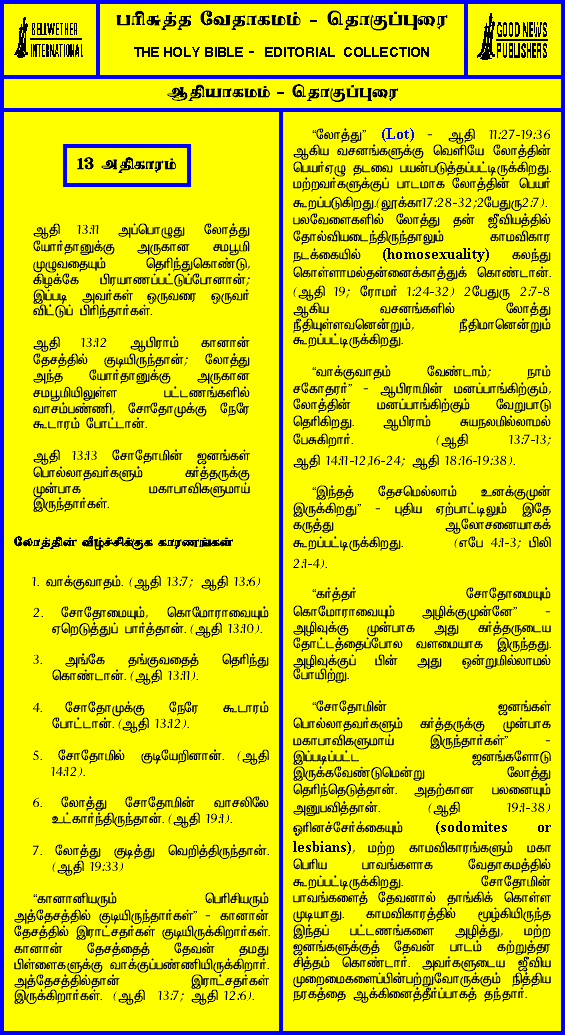 BELLWETHER
INTERNATIONAL
பரிசுத்த வேதாகமம் - தொகுப்புரை
THE HOLY BIBLE - EDITORIAL COLLECTION
GOOD NEWS
PUBLISHERS
ஆதியாகமம் - தொகுப்புரை
13 அதிகாரம்
ஆதி 13:11 அப்பொழுது லோத்து
யோர்தானுக்கு அருகான சமபூமி
முழுவதையும் தெரிந்துகொண்டு,
கிழக்கே பிரயாணப்பட்டுப்போனான்;
இப்படி அவர்கள் ஒருவரை ஒருவர்
விட்டுப் பிரிந்தார்கள்.
ஆதி 13:12 ஆபிராம் கானான்
தேசத்தில் குடியிருந்தான்; லோத்து
அந்த யோர்தானுக்கு அருகான
சமபூமியிலுள்ள பட்டணங்களில்
வாசம்பண்ணி, சோதோமுக்கு நேரே
கூடாரம் போட்டான்.
ஆதி 13:13 சோதோமின் ஜனங்கள்
பொல்லாதவர்களும் கர்த்தருக்கு
முன்பாக மகாபாவிகளுமாய்
இருந்தார்கள்.
லோத்தின் வீழ்ச்சிக்குக காரணங்கள்
1. வாக்குவாதம். (ஆதி 13:7; ஆதி 13:6)
2. சோதோமையும், கொமோராவையும்
ஏறெடுத்துப் பார்த்தான். (ஆதி 13:10).
3. அங்கே தங்குவதைத் தெரிந்து
கொண்டான். (ஆதி 13:11).
4. சோதோமுக்கு நேரே கூடாரம்
போட்டான். (ஆதி 13:12).
5. சோதோமில் குடியேறினான். (ஆதி
14:12).
6. லோத்து சோதோமின் வாசலிலே
உட்கார்ந்திருந்தான். (ஆதி 19:1).
7. லோத்து குடித்து வெறித்திருந்தான்.
(ஆதி 19:33)
“கானானியரும் பெரிசியரும்
அத்தேசத்தில் குடியிருந்தார்கள்” - கானான்
தேசத்தில் இராட்சதர்கள் குடியிருக்கிறார்கள்.
கானான் தேசத்தைத் தேவன் தமது
பிள்ளைகளுக்கு வாக்குப்பண்ணியிருக்கிறார்.
அத்தேசத்தில்தான் இராட்சதர்கள்
இருக்கிறார்கள். (ஆதி 13:7; ஆதி 12:6).
“லோத்து” (Lot) - ஆதி 11:27-19:36
ஆகிய வசனங்களுக்கு வெளியே லோத்தின்
பெயர்ஏழு தடவை பயன்படுத்தப்பட்டிருக்கிறது.
மற்றவர்களுக்குப் பாடமாக லோத்தின் பெயர்
கூறப்படுகிறது.(லூக்கா17:28-32;2பேதுரு2:7).
பலவேளைகளில் லோத்து தன் ஜீவியத்தில்
தோல்வியடைந்திருந்தாலும் காமவிகார
நடக்கையில் (homosexuality) கலந்து
கொள்ளாமல்தன்னைக்காத்துக் கொண்டான்.
(ஆதி 19; ரோமர் 1:24-32) 2பேதுரு 2:7-8
ஆகிய வசனங்களில் லோத்து
நீதியுள்ளவனென்றும், நீதிமானென்றும்
கூறப்பட்டிருக்கிறது.
“வாக்குவாதம் வேண்டாம்; நாம்
சகோதரர்” - ஆபிராமின் மனப்பாங்கிற்கும்,
லோத்தின் மனப்பாங்கிற்கும் வேறுபாடு
தெரிகிறது. ஆபிராம் சுயநலமில்லாமல்
பேசுகிறார். (ஆதி 13:7-13;
ஆதி 14:11-12,16-24; ஆதி 18:16-19:38).
“இந்தத் தேசமெல்லாம் உனக்குமுன்
இருக்கிறது” - புதிய ஏற்பாட்டிலும் இதே
கருத்து ஆலோசனையாகக்
கூறப்பட்டிருக்கிறது. (எபே 4:1-3; பிலி
2:1-4).
“கர்த்தர் சோதோமையும்
கொமோராவையும் அழிக்குமுன்னே” -
அழிவுக்கு முன்பாக அது கர்த்தருடைய
தோட்டத்தைப்போல வளமையாக இருந்தது.
அழிவுக்குப் பின் அது ஒன்றுமில்லாமல்
போயிற்று.
“சோதோமின் ஜனங்கள்
பொல்லாதவர்களும் கர்த்தருக்கு முன்பாக
மகாபாவிகளுமாய் இருந்தார்கள்” -
இப்படிப்பட்ட ஜனங்களோடு
இருக்கவேண்டுமென்று லோத்து
தெரிந்தெடுத்தான். அதற்கான பலனையும்
அனுபவித்தான். (ஆதி 19:1-38)
ஓரினச்சேர்க்கையும் (sodomites or
lesbians), மற்ற காமவிகாரங்களும் மகா
பெரிய பாவங்களாக வேதாகமத்தில்
கூறப்பட்டிருக்கிறது. சோதோமின்
பாவங்களைத் தேவனால் தாங்கிக் கொள்ள
முடியாது. காமவிகாரத்தில் மூழ்கியிருந்த
இந்தப் பட்டணங்களை அழித்து, மற்ற
ஜனங்களுக்குத் தேவன் பாடம் கற்றுத்தர
சித்தம் கொண்டார். அவர்களுடைய ஜீவிய
முறைமைகளைப்பின்பற்றுவோருக்கும் நித்திய
நரகத்தை ஆக்கினைத்தீர்ப்பாகத் தந்தார்.